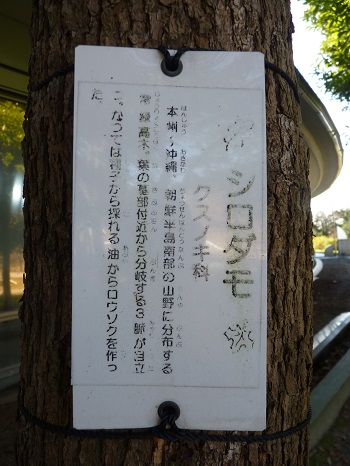 シロダモ
クスノキ科
本州～沖縄。朝鮮半島南部の山野に分布する
常緑高木。葉の基部付近から分岐する3脈が目立
つ。かつては種子から採れる油からロウソクを作っ
た。